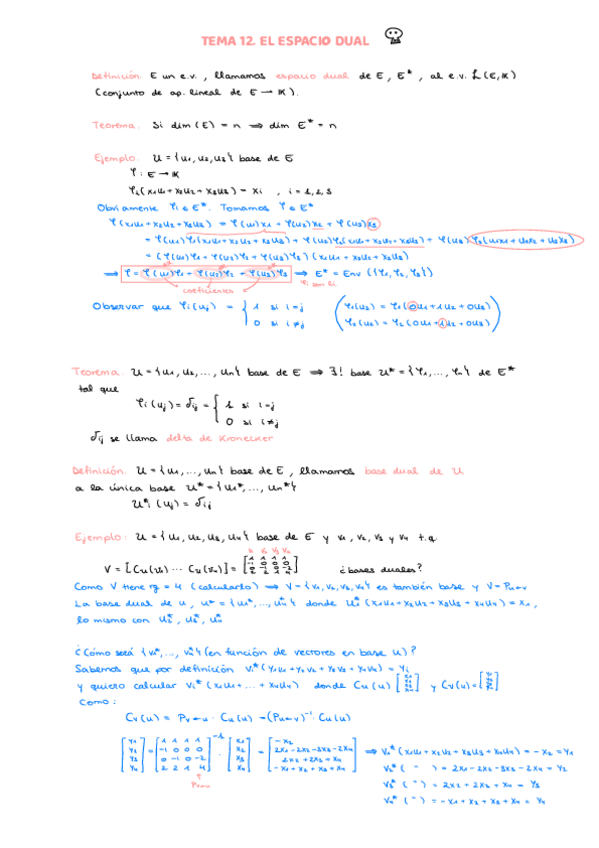 TEMA 12. EL ESPACIO DUAL
Definición. E un e.v., llamamos espacio dual de E, E*, al e.v. L(E,K)
(conjunto de ap. lineal de E → K).
Teorema. Si dim(E) = n ⟹ dim E* = n
Ejemplo. U = {u1, u2, u3} base de E
φ: E → K
φi(x1u1+x2u2+x3u3) = xi , i = 1,2,3
Obviamente φi ∈ E*. Tomamos φ ∈ E*
φ(x1u1+x2u2+x3u3) = φ(u1)x1 + φ(u2)x2 + φ(u3)x3
= φ(u1)φ1(x1u1+x2u2+x3u3) + φ(u2)φ2(x1u1+x2u2+x3u3) + φ(u3)
= (φ(u1)φ1 + φ(u2)φ2 + φ(u3)φ3)(x1u1+x2u2+x3u3)
⟹ φ = φ(u1)φ1 + φ(u2)φ2 + φ(u3)φ3 ⟹ E* = Env({φ1, φ2, φ3})
coeficientes
Observar que φi(uj) = { 1 si i=j
0 si i≠j
(φ1(u2) = φ1(0u1+1u2+0u3)
φ2(u2) = φ2(0u1+1u2+0u3))
Teorema. U = {u1, u2, ..., un} base de E ⟹ ∃! base U* = {φ1, ..., φn} de E*
tal que
φi(uj) = δij = { 1 si i=j
0 si i≠j
δij se llama delta de Kronecker
Definición. U = {u1, ..., un} base de E, llamamos base dual de U
a la única base U* = {u1*, ..., un*}
u*i(uj) = δij
Ejemplo: U = {u1, u2, u3, u4} base de E y v1, v2, v3 y v4 t.q.
V = [Cu(v1) ... Cu(v4)] =
¿bases duales?
Como V tiene rg = 4 (calcularlo) ⟹ V = {v1, v2, v3, v4} es también base y V = Pu←v
La base dual de u, u* = {u1*, ..., u4*} donde u1*(x1u1+x2u2+x3u3+x4u4) = x1,
lo mismo con u2*, u3*, u4*
¿Cómo será {v1*, ..., v4*} (en función de vectores en base u)?
Sabemos que por definición vi*(y1v1+y2v2+y3v3+y4v4) = yi
y quiero calcular vi*(x1u1+ ... +x4u4) donde Cu(u) y Cv(u) =
Como:
Cv(u) = Pv←u · Cu(u) = (Pu←v)⁻¹ · Cu(u)
[y1 [1 1 1 1 -1 [x1 [-x2
y2 = -1 0 0 0 · x2 = 2x1-2x2-3x3-2x4 ⟹ v1*(x1u1+x2u2+x3u3+x4u4) = -x2 = y1
y3 0 -1 0 -2 x3 2x2+2x3+x4 v2*( " ) = 2x1-2x2-3x3-2x4 = y2
y4] 2 2 1 4] x4] -x1+x2+x3+x4] v3*( " ) = 2x2+2x3+x4 = y3
Pu←v
v4*( " ) = -x1+x2+x3+x4 = y4